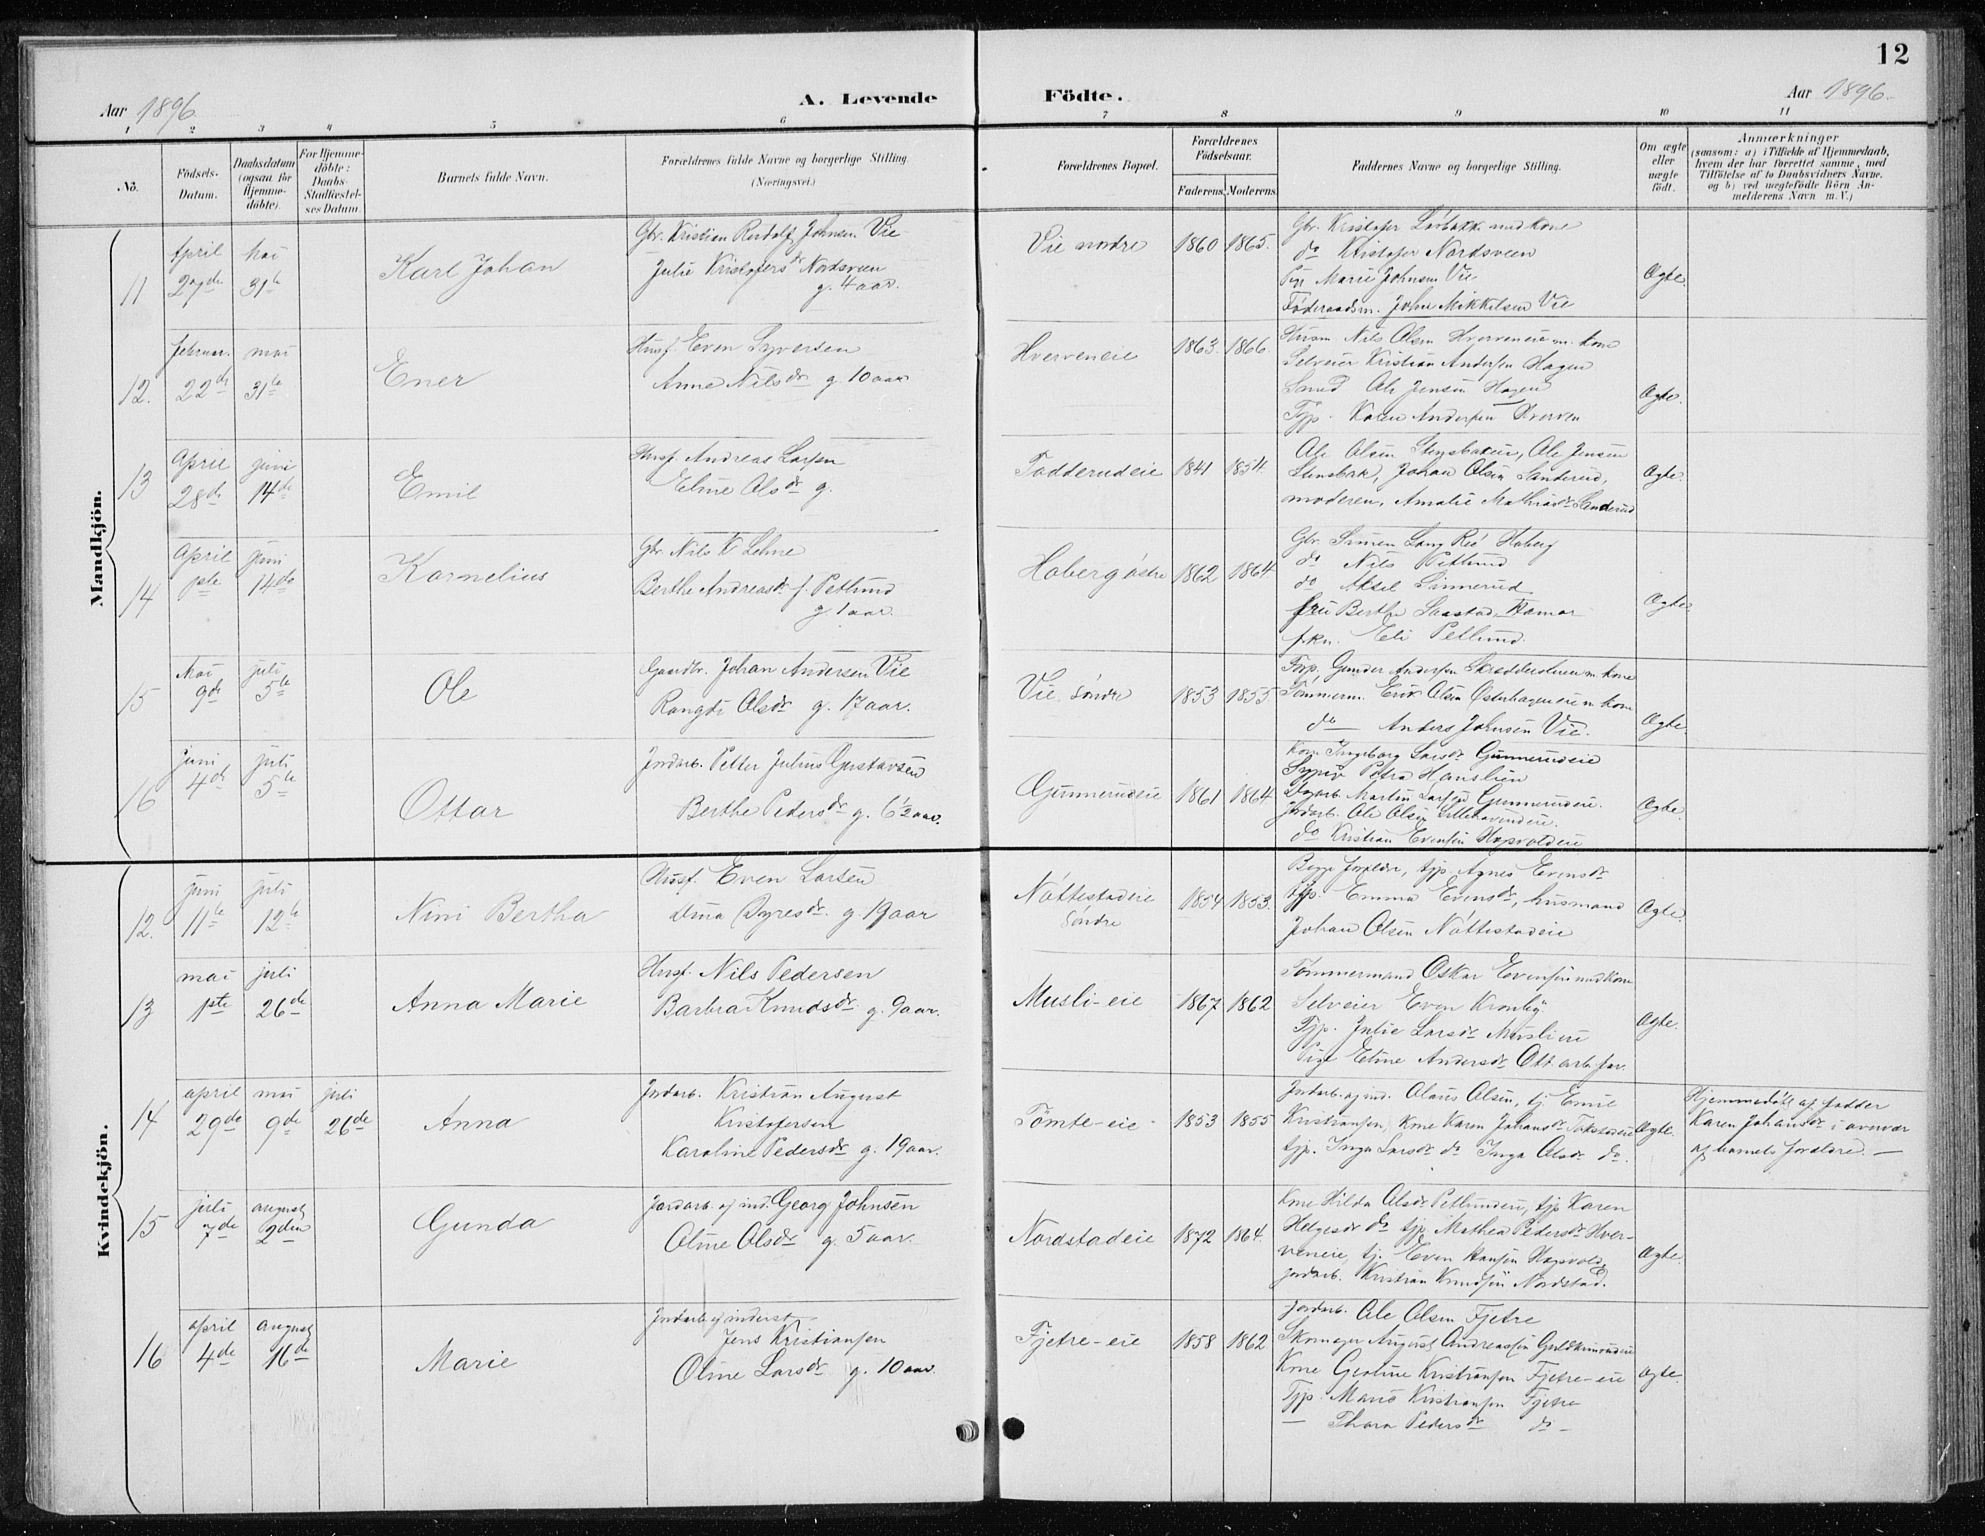 12
Aar 1896
A. Levende
Födte.
Aar 1896.
1 2 3 4 5 6 7 8 9 10 11
Nö.
Födsels-Datum.
Daabsdatum (ogsaa for Hjemme-döbte).
For Hjemme-döbte: Daabs-Stadfæstel-ses Datum.
Barnets fulde Navn.
Forældrenes fulde Navne og borgerlige Stilling.
(Næringsvei.)
Forældrenes Bopæl.
Forældrenes Födselsaar.
Faderens. Moderens.
Faddernes Navne og borgerlige Stilling.
Om ægte eller uægte födt.
Anmærkninger
(saasom: a) i Tilfælde af Hjemmedaab,
hvem der har forrettet samme, med
Tilföielse af to Daabsvidners Navne.
og b) ved uægtefödte Börn An-
melderens Navn m. V.)
Mandkjön.
11
April 29de
Mai 31te
Karl Johan
Gbr. Kristian Rudolf Johnsen Vie
Julie Kristofersdr Nordsveen
g. 4 aar.
Vie nordre
1860 1865.
Gbr. Kristofer med kone
do Kristofer Nordsveen
Pige Marie Johnsen Vie
Føderaadsm. Johs Mikkelsen Vie
Ægte.
12.
Februar. 22de
mai 31te
Ener
Husf. Even Syversen
Anne Nilsdr g. 10 aar
Hverveneie
1863. 1866.
Husm Nils Olsen Hverveneie m. kone
Selveier Kristian Andersen Hagen
Smed Ole Jensen Hagen
Tjp. Karen Andersen Hverven
Ægte.
13
April 28de
juni 14de
Emil
Husf Andreas Larsen
Eline Olsdr g.
Fodderudeie
1841 1854.
Ole Olsen Stensbakeie, Ole Jensen
Stensbak, Johan Olsen Sanderud,
moderen, Amalie Mathiasdr Sanderud
Ægte.
14
April 1ste
Juni 14de
Kornelius
Gbr. Nils K Lehne
Berthe Andreasdr f. Petlund
g. 1 aar.
Hoberg østre
1862 1864
Gbr. Simen Lang Hoberg
do Nils Petlund
do Aksel Linnerud
fru Berthe Saastad, Hamar
frkn. Eli Petlund.
Ægte
15
Mai 9de
juli 5te
Ole
Gaardbr. Johan Andersen Vie
Rangdi Olsdr g. 17 aar.
Vie søndre
1853 1855.
Gunder Andersen m kone
Tömmerm. Erik Olsen Østerhageneie m kone
do — Anders Johnsen Vie.
Ægte
16
juni 4de
juli 5te
Ottar
Jordarb. Petter Julius Gustavsen
Berthe Pedersdr g. 6 1/2 aar.
Gunnerudeie
1861 1864
Kone Ingeborg Larsdr Gunnerudeie
Petra Hanslien
Dagarb Martin Larsen Gunnerudeie.
Jordarb. Ole Olsen
do Kristian Evensen Hopvoldeie
Ægte.
Kvindekjön.
12.
juni 11te
juli 12te
Nini Bertha
Husf. Even Larsen
Dina Dyresdr. g. 19 aar
Nöttestadeie
Søndre
1854 1853.
Begge forældre, tjp Agnes Evensdr
tjp. Emma Evensdr, husmand
Johan Olsen Nöttestadeie
Ægte.
13
mai 1ste
juli 26de
Anna Marie
Husf. Nils Pedersen
Barbra Knudsdr g. 9 aar.
Musli-eie
1867 1862
Tømmermand Oskar Evensen med kone
Selveier Even Kronby
Tjp. Julie Larsdr Muslieie
Pige Eline Andersdr
Ægte.
14
april 29de
mai 9de
juli 26de
Anna
Jordarb. Kristian August
Kristofersen
Karoline Pedersdr g. 19 aar.
Tømte-eie
1853 1855
Jordarb. og ind. Olaus Olsen, tj Emil
Kristiansen, kone Karen Johansdr
tjp. Inga Larsdr do Inga Olsdr do.
Ægte.
Hjemmedöbt af fadder
Karen Johansdr i overvær
af barnets forældre. —
15
juli 7de
august 2den
Gunda
Jordarb. og ind. Georg Johnsen
Oline Olsdr g. 5 aar.
Nordstadeie
1872 1864.
Kone Hilda Olsdr Petlundeie, tjp Karen
Helgesdr do tjp Mathea Pedersdr Hver-
veneie, tj. Even Hansen Hopvold,
jordarb. Kristian Knudsen Nordstad.
Ægte.
16
april 4de
august 16de
Marie
Jordarb og inderst
Jens Kristiansen
Oline Larsdr g. 10 aar.
Fjetre-eie
1858 1862
Jordarb. Ole Olsen Fjetre
Skomager August Andreassen
Kone Gustine Kristiansen Fjetre-eie
Tjp. Marie Kristiansen Fjetre
— Thora Pedersdr do —
Ægte.